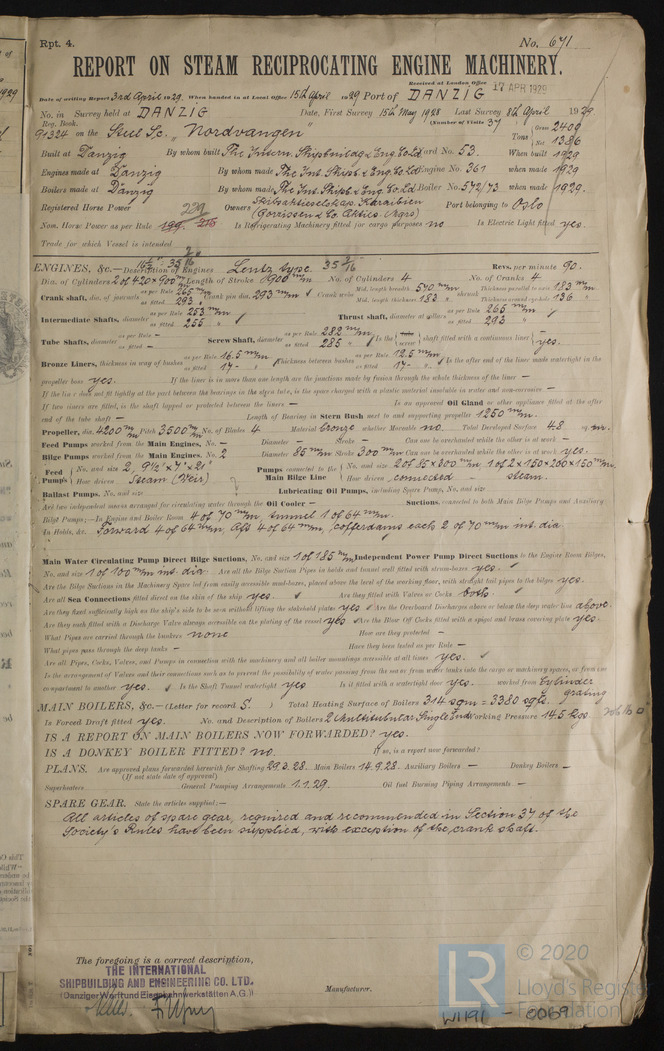 Rpt. 4. No. 671
REPORT ON STEAM RECIPROCATING ENGINE MACHINERY.
Received at London Office 17 APR 1929
Date of writing Report 3rd April 1929. When handed in at Local Office 15th April 1929 Port of DANZIG
No. in Survey held at DANZIG Date, First Survey 15th May 1928 Last Survey 8th April 1929
Reg. Book. (Number of Visits 37
91324 on the Steel Sc. "Nordvangen" Tons Gross 2409 Net 1386
Built at Danzig By whom built The Intern. Shipbuildg & Eng. Co Ld Yard No. 53. When built 1929
Engines made at Danzig By whom made The Int. Shipb. & Eng. Co Ld Engine No. 361 when made 1929
Boilers made at Danzig By whom made The Int. Shipb. & Eng. Co Ld Boiler No. 572/73 when made 1929.
Registered Horse Power Owners Skibsaktieselskap Karaibien (Gorrissen & Co. Aktics. Mgrs) Port belonging to Oslo
229
Nom. Horse Power as per Rule Is Refrigerating Machinery fitted for cargo purposes no Is Electric Light fitted yes.
Trade for which Vessel is intended
ENGINES, &c.—Description of Engines Lentz type. Revs. per minute 90.
Dia. of Cylinders 2 of 420 x 900 m/m Length of Stroke 900 m/m No. of Cylinders 4 No. of Cranks 4
Crank shaft, dia. of journals as per Rule 265 m/m as fitted 293 Crank pin dia. 293 m/m Crank webs Mid. length breadth 570 m/m Mid. length thickness 183 shrunk Thickness parallel to axis 183 m/m Thickness around eye-hole 136
Intermediate Shafts, diameter as per Rule 253 m/m as fitted 255 Thrust shaft, diameter at collars as per Rule 265 m/m as fitted 293
Tube Shafts, diameter as per Rule – as fitted – Screw Shaft, diameter as per Rule 282 m/m as fitted 285 Is the screw shaft fitted with a continuous liner yes.
Bronze Liners, thickness in way of bushes as per Rule 16.5 m/m as fitted 17 Thickness between bushes as per Rule 12.5 m/m as fitted 17 Is the after end of the liner made watertight in the
propeller boss yes. If the liner is in more than one length are the junctions made by fusion through the whole thickness of the liner –
If the liner does not fit tightly at the part between the bearings in the stern tube, is the space charged with a plastic material insoluble in water and non-corrosive –
If two liners are fitted, is the shaft lapped or protected between the liners – Is an approved Oil Gland or other appliance fitted at the after
end of the tube shaft – Length of Bearing in Stern Bush next to and supporting propeller 1250 m/m.
Propeller, dia. 4200 m/m Pitch 3500 m/m No. of Blades 4 Material bronze whether Moveable no. Total Developed Surface 48 sq.
Feed Pumps worked from the Main Engines, No. – Diameter – Stroke – Can one be overhauled while the other is at work –
Bilge Pumps worked from the Main Engines, No. 2 Diameter 85 m/m Stroke 300 m/m Can one be overhauled while the other is at work yes.
Feed Pumps No. and size 2, 9½" x 7" x 21" How driven Steam (Weir) Pumps connected to the Main Bilge Line No. and size 2 of 85 x 300 m/m, 1 of 2 x 150 x 200 x 150 m/m. How driven connected – steam.
Ballast Pumps, No. and size Lubricating Oil Pumps, including Spare Pump, No. and size
Are two independent means arranged for circulating water through the Oil Cooler – Suctions, connected to both Main Bilge Pumps and Auxiliary
Bilge Pumps;—In Engine and Boiler Room 4 of 70 m/m, tunnel 1 of 64 m/m.
In Holds, &c. Forward 4 of 64 m/m, Aft 4 of 64 m/m, cofferdams each 2 of 70 m/m int. dia
Main Water Circulating Pump Direct Bilge Suctions, No. and size 1 of 185 m/m Independent Power Pump Direct Suctions to the Engine Room Bilges,
No. and size 1 of 100 m/m int. dia. Are all the Bilge Suction Pipes in holds and tunnel well fitted with strum-boxes yes.
Are the Bilge Suctions in the Machinery Space led from easily accessible mud-boxes, placed above the level of the working floor, with straight tail pipes to the bilges yes.
Are all Sea Connections fitted direct on the skin of the ship yes. Are they fitted with Valves or Cocks both.
Are they fixed sufficiently high on the ship's side to be seen without lifting the stokehold plates yes Are the Overboard Discharges above or below the deep water line above.
Are they each fitted with a Discharge Valve always accessible on the plating of the vessel yes Are the Blow Off Cocks fitted with a spigot and brass covering plate yes.
What Pipes are carried through the bunkers none How are they protected –
What pipes pass through the deep tanks – Have they been tested as per Rule –
Are all Pipes, Cocks, Valves, and Pumps in connection with the machinery and all boiler mountings accessible at all times yes.
Is the arrangement of Valves and their connections such as to prevent the possibility of water passing from the sea or from water tanks into the cargo or machinery spaces, or from one
compartment to another yes. Is the Shaft Tunnel watertight yes Is it fitted with a watertight door yes. worked from Cylinder grating
MAIN BOILERS, &c.—(Letter for record S.) Total Heating Surface of Boilers 314 sqm = 3380 sqft.
Is Forced Draft fitted yes. No. and Description of Boilers 2 Multitubular Single Ended Working Pressure 14.5 kgs.
IS A REPORT ON MAIN BOILERS NOW FORWARDED? yes.
IS A DONKEY BOILER FITTED? no. If so, is a report now forwarded?
PLANS. Are approved plans forwarded herewith for Shafting 29.3.28. Main Boilers 14.9.28. Auxiliary Boilers – Donkey Boilers –
(If not state date of approval)
Superheaters General Pumping Arrangements 1.1.29. Oil fuel Burning Piping Arrangements –
SPARE GEAR. State the articles supplied:—
All articles of spare gear, required and recommended in Section 37 of the
Society's Rules have been supplied, with exception of the crank shaft.
The foregoing is a correct description,
THE INTERNATIONAL
SHIPBUILDING AND ENGINEERING CO. LTD.
(Danziger Werft und Eisenbahnwerkstätten A.G.)
Manufacturer.
© 2020
LR Lloyd's Register
Foundation
W1191 - 0069